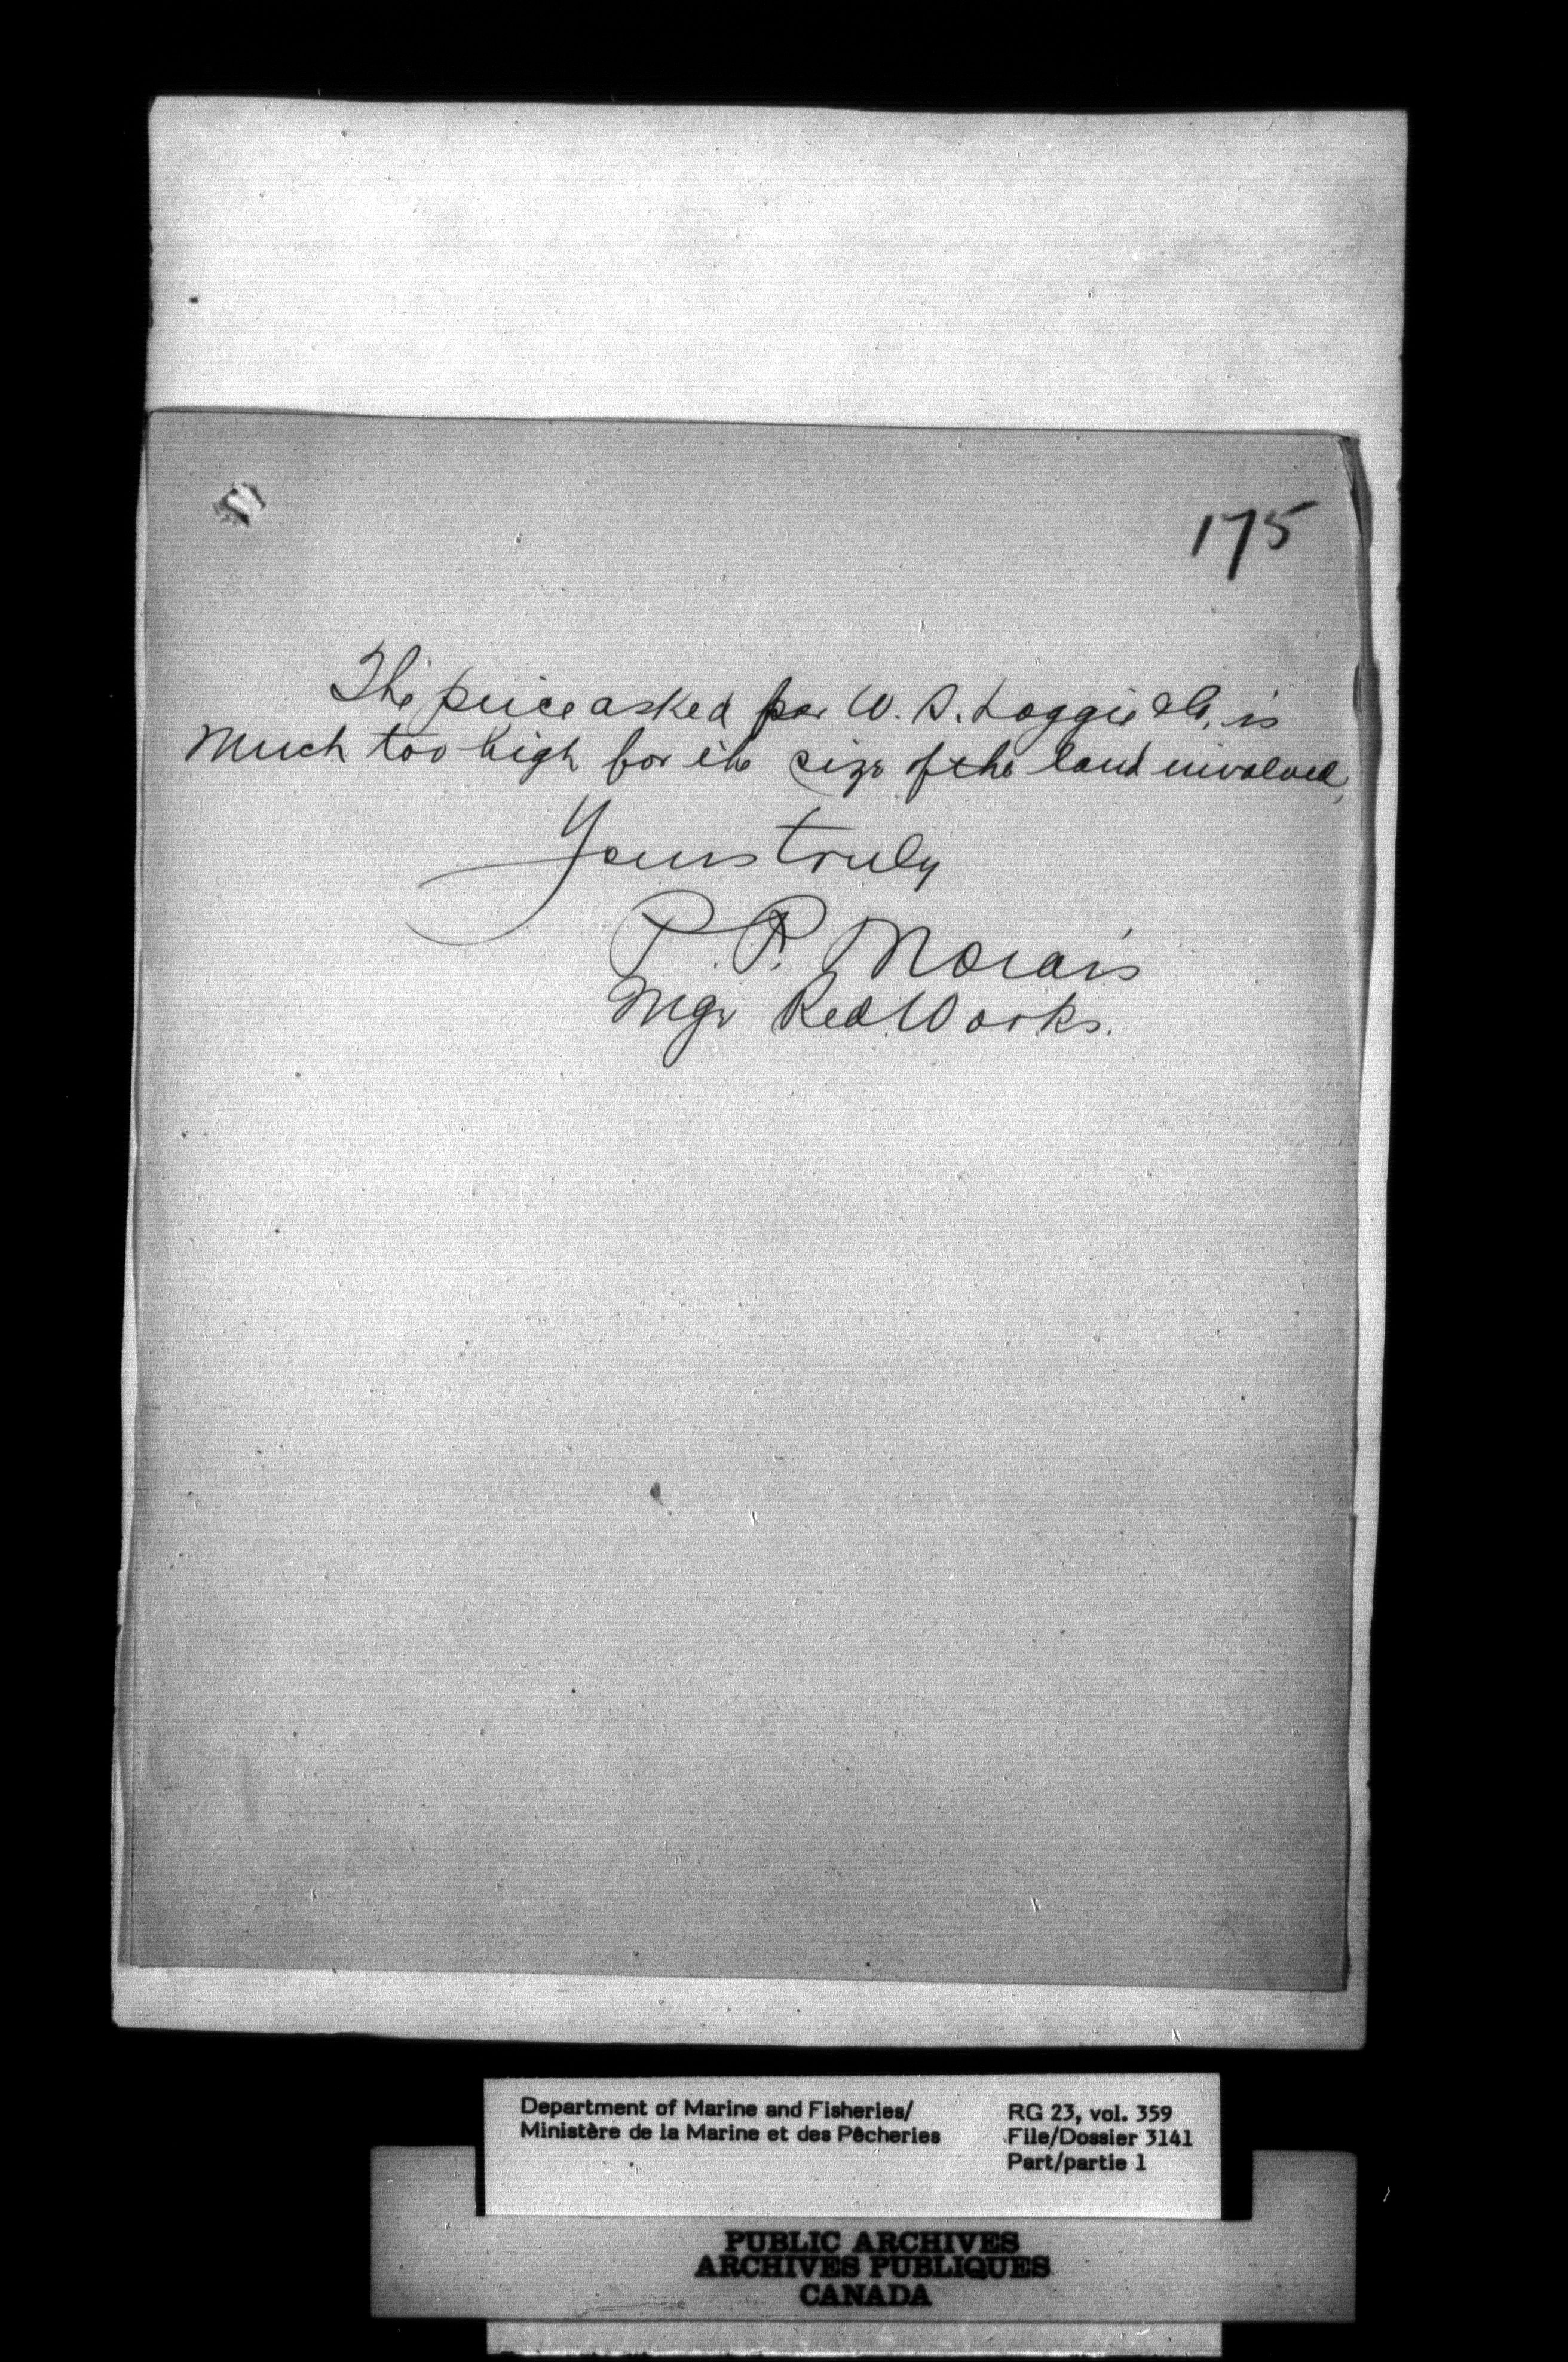 175
The price asked for W. S. Loggie Co, is
Much too high for the size of the land involved,
Yours truly
P. P. Morais
Mgr Red. Works.
Department of Marine and Fisheries/
Ministère de la Marine et des Pêcheries
RG 23, vol. 359
File/Dossier 3141
Part/partie 1
PUBLIC ARCHIVES
ARCHIVES PUBLIQUES
CANADA